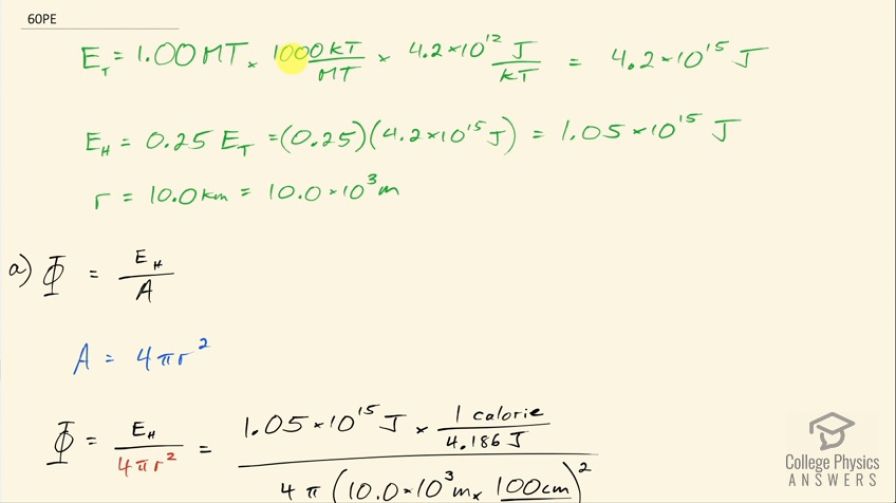 60PE
E_T = 1.00 MT × 1000 kT/MT × 4.2×10¹² J/kT = 4.2×10¹⁵ J
E_H = 0.25 E_T = (0.25)(4.2×10¹⁵ J) = 1.05×10¹⁵ J
r = 10.0 km = 10.0×10³ m
a) Φ = E_H/A
A = 4πr²
Φ = E_H/4πr² = 1.05×10¹⁵ J × 1 calorie/4.186 J
4π(10.0×10³ m × 100cm)²
College Physics
ANSWERS